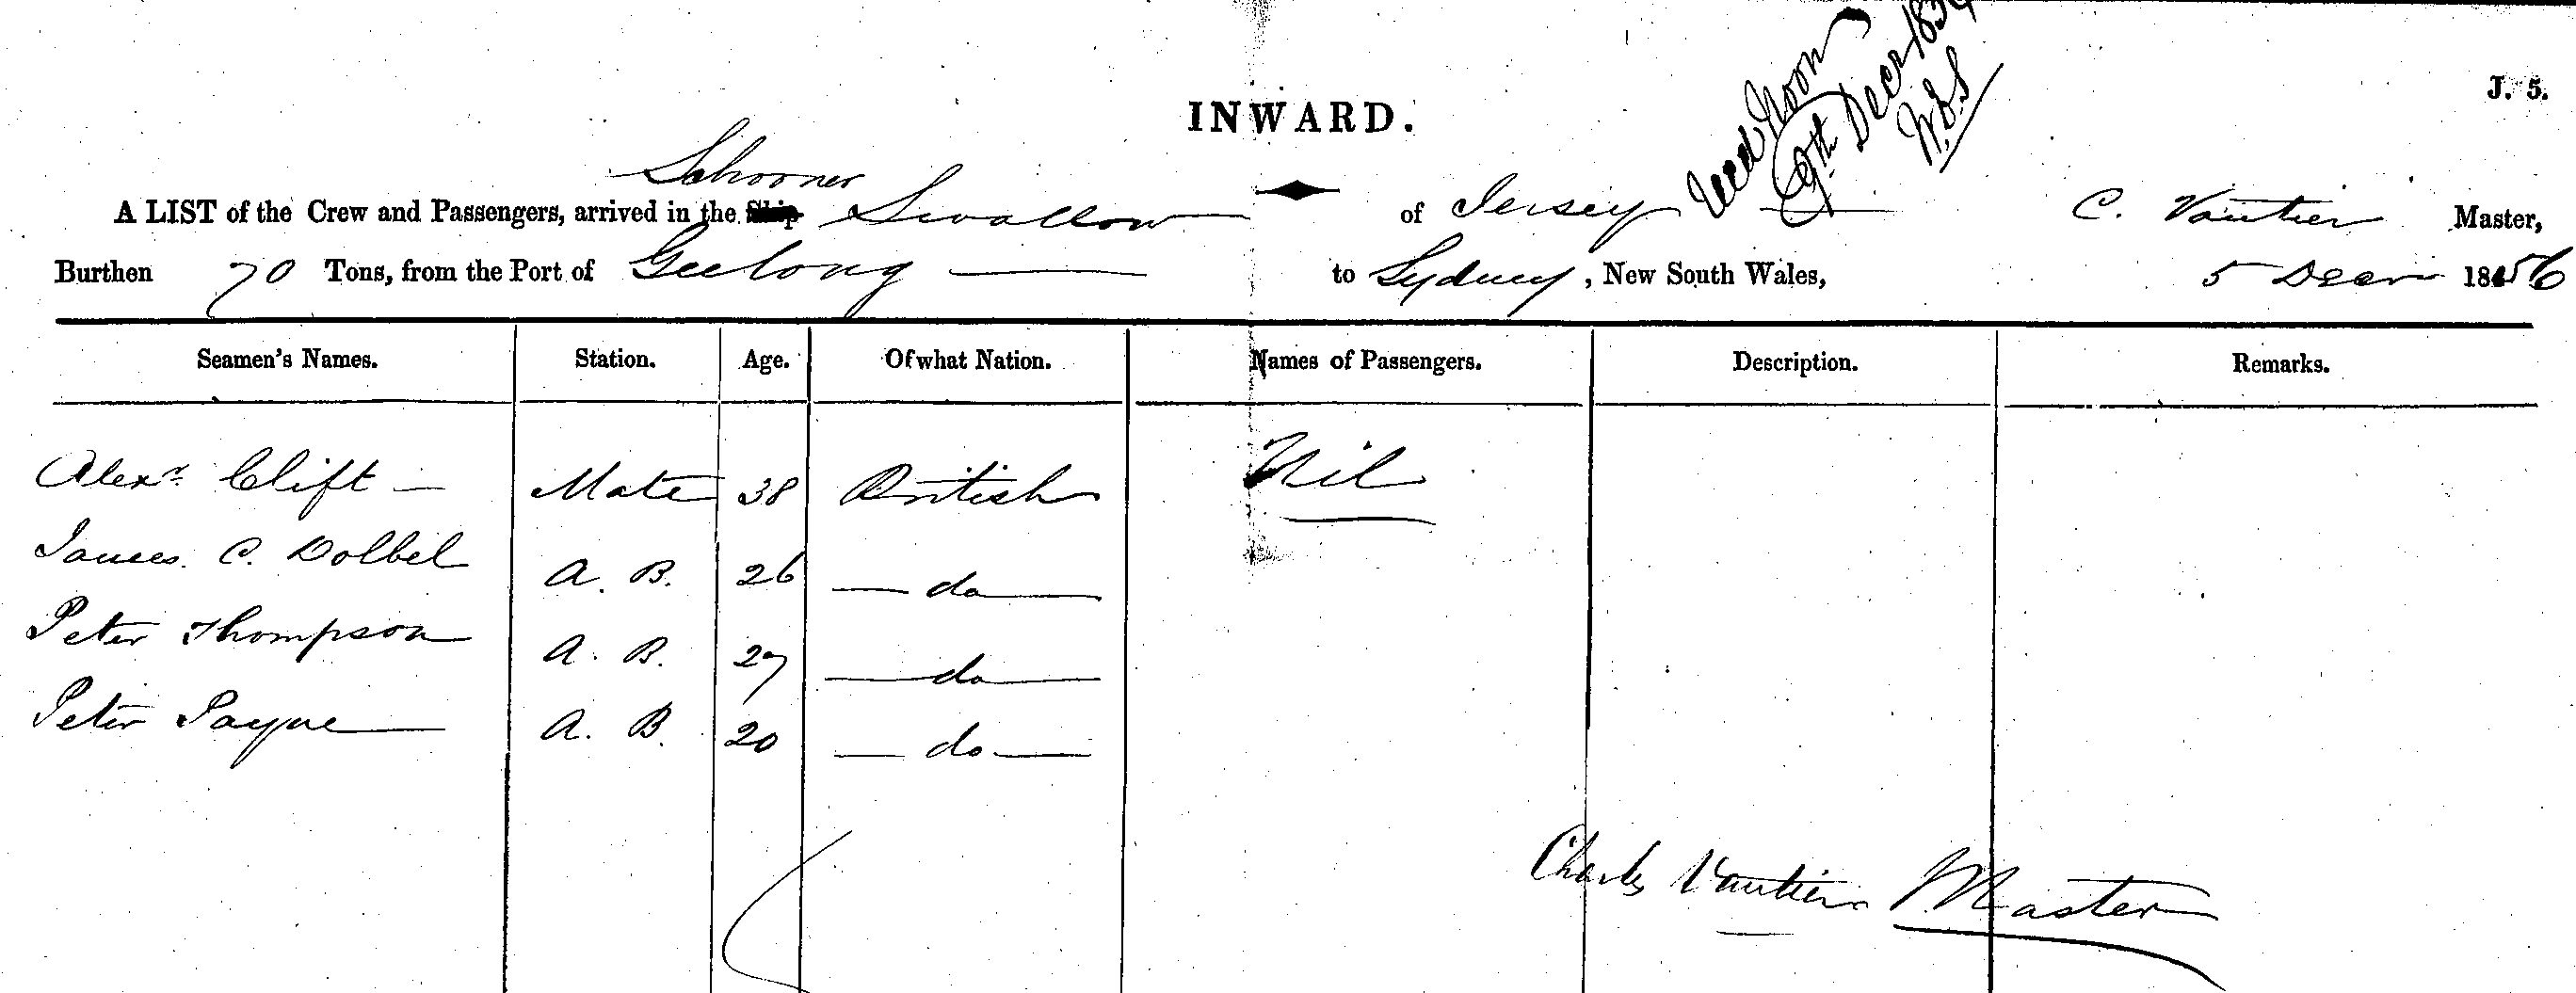 J. 5.
INWARD.
Recd Noon
9th Decr 185
Schooner
A LIST of the Crew and Passengers, arrived in the Ship Swallow of Jersey C. Vautier Master,
Burthen 70 Tons, from the Port of Geelong to Sydney, New South Wales, 5 Decr 1856
Seamen's Names. Station. Age. Of what Nation. Names of Passengers. Description. Remarks.
Alexr. Clift Mate 38 British Nil
James C. Dolbel A. B. 26 do
Peter Thompson A. B. 27 do
Peter Payne A. B. 20 do
Charles Vautier Master